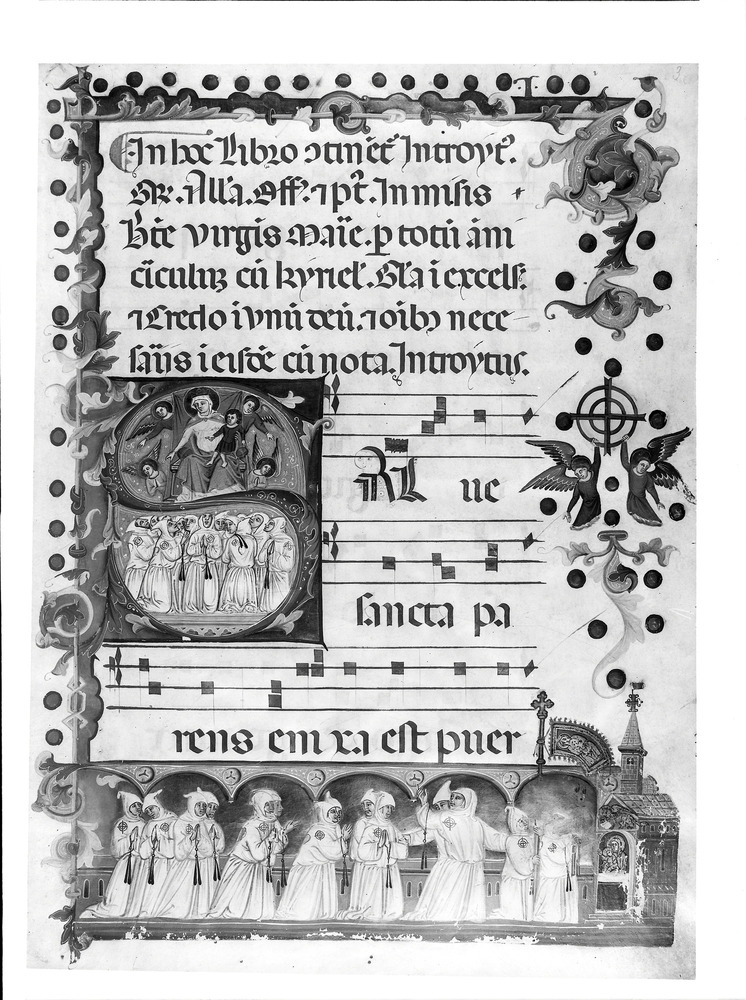 In hoc libro ɔtinēt᷑ Introyt᷑.
GR. All'a. Off'. ⁊ pt᷑. In misis
B̄te Virgis Maı̄e. p̱ totū am̄
cīculuꝫ cū kyriel'. Gl'a i excels᷑.
⁊ Credo i vnū deū. ⁊ oı̄bꝫ nece
sāijs i eisdē cū nota. Introytus.
S AL ue
sancta pa
rens em xa est puer